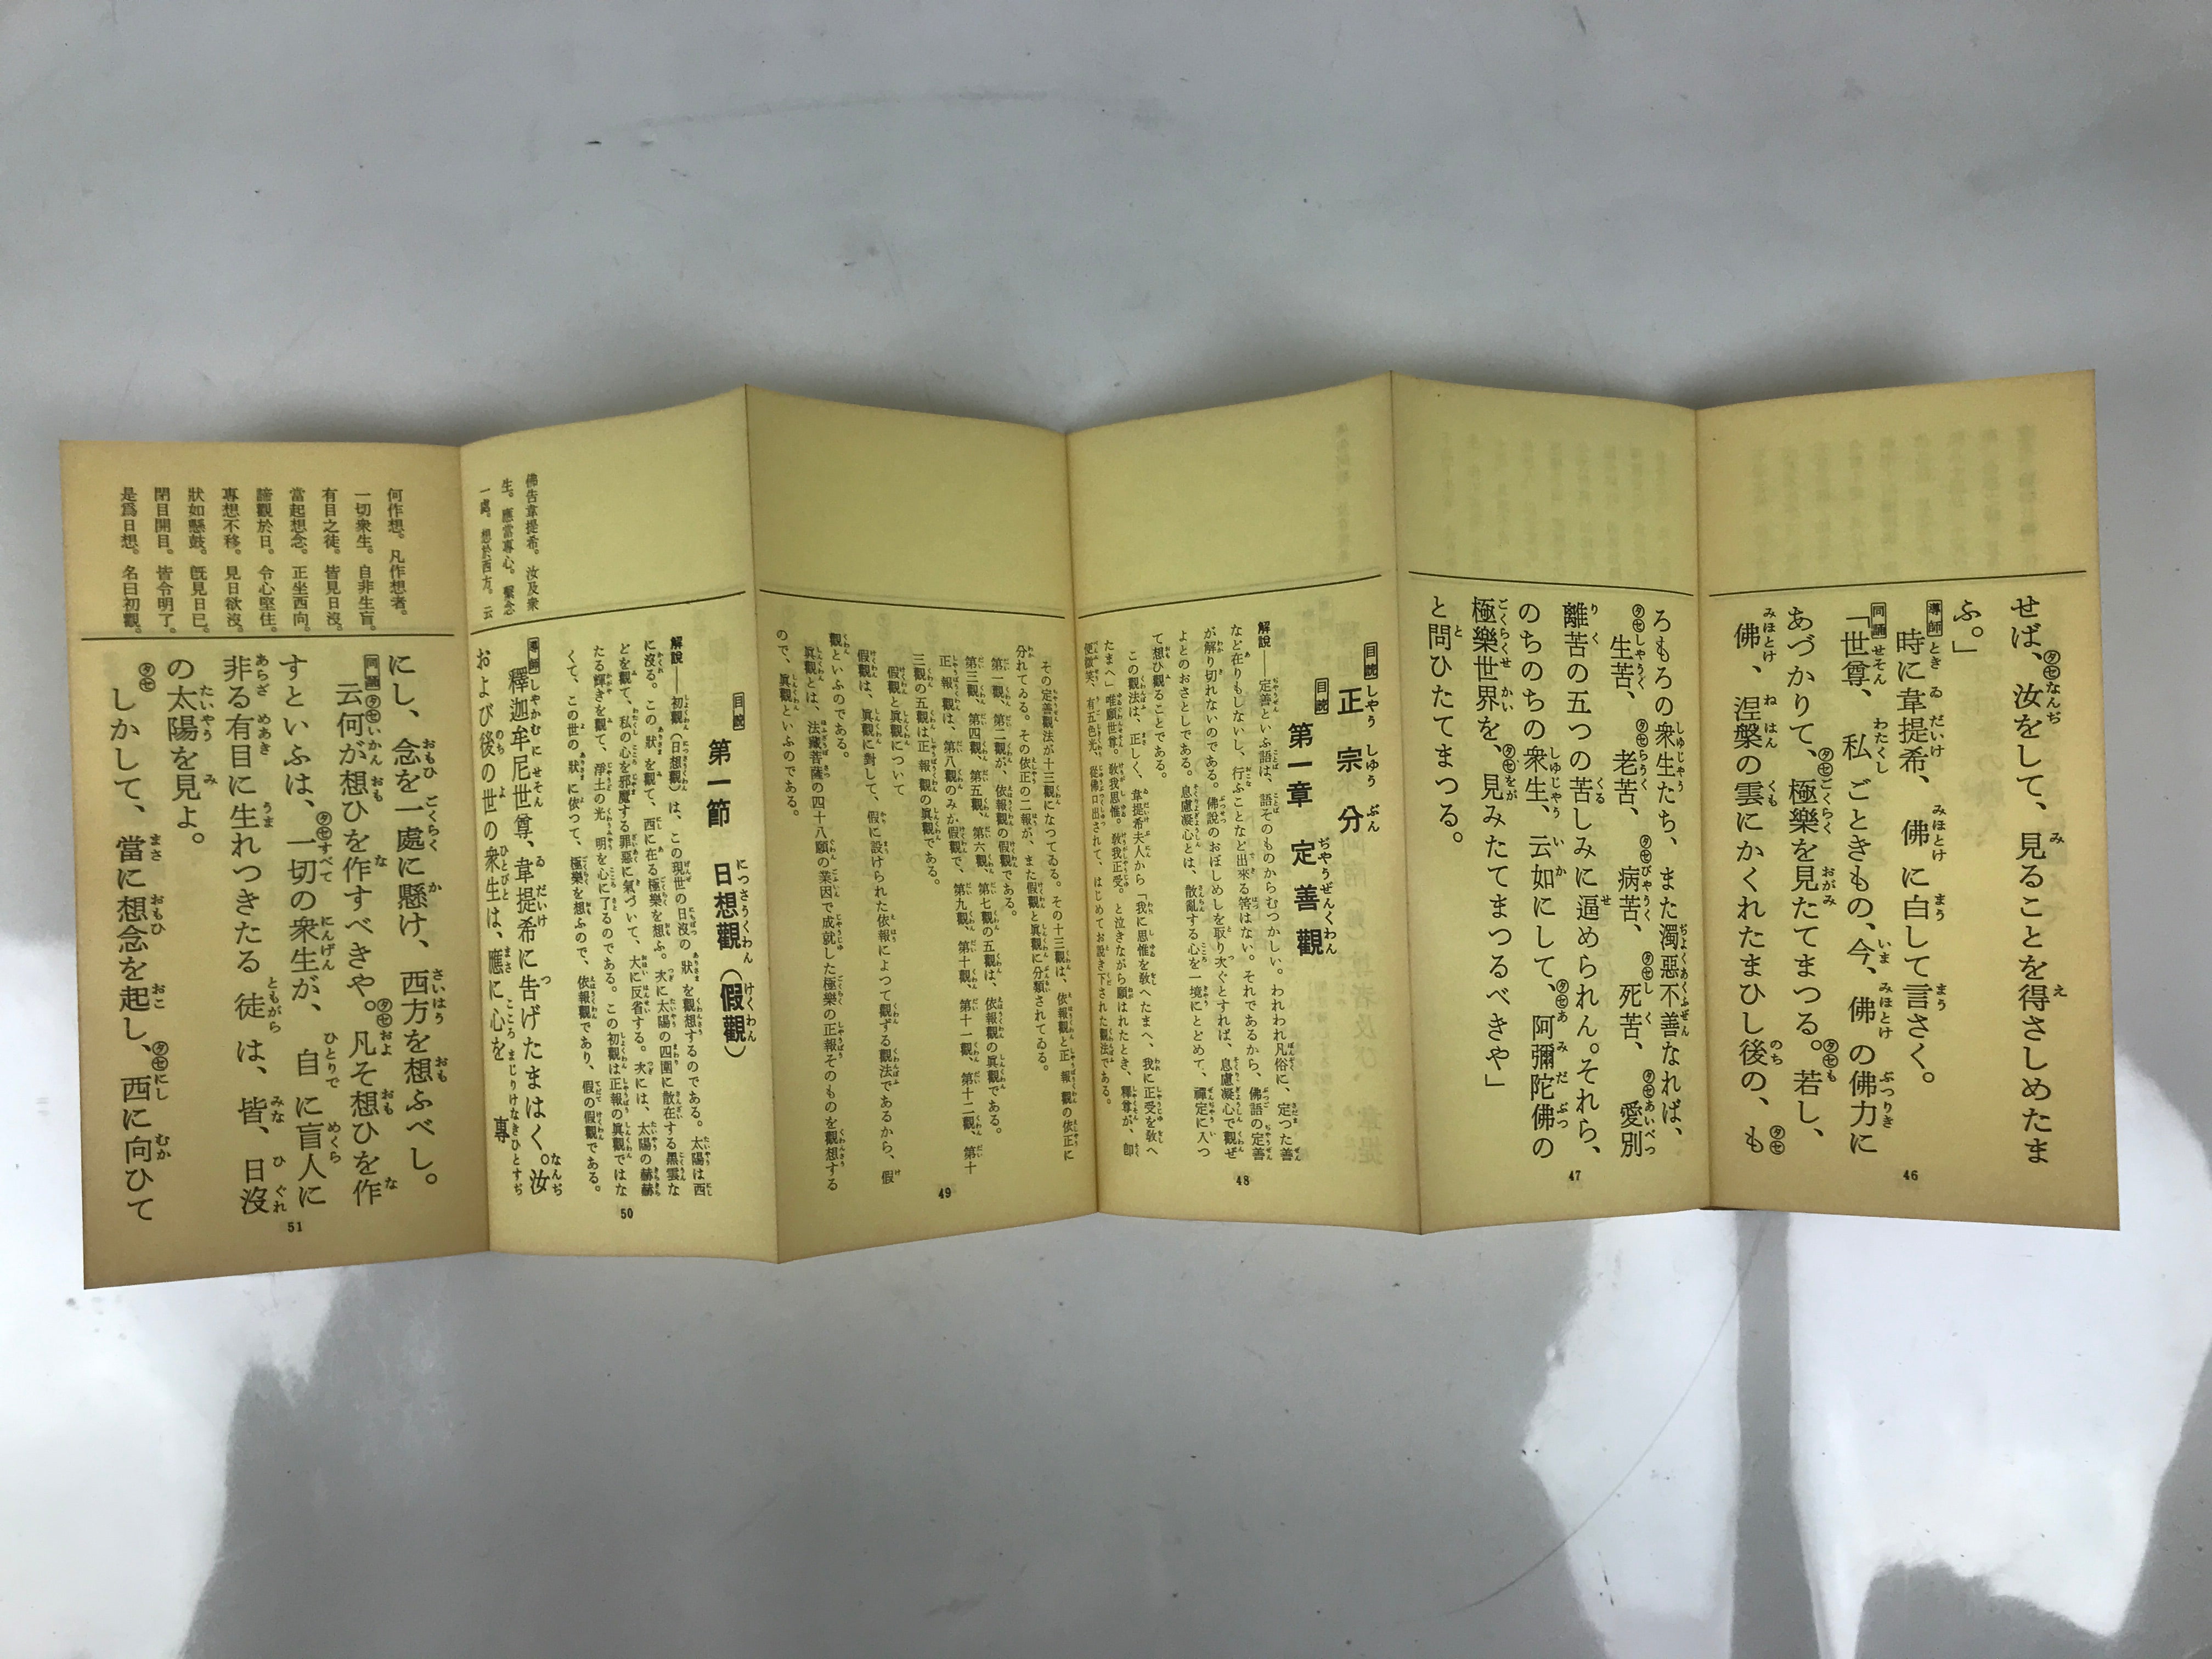 せば、汝をして、見ることを得さしめたま
ふ。」
導師 時に韋提希、佛に白して言さく。
同誦 「世尊、私ごときもの、今、佛の佛力に
あづかりて、極樂を見たてまつる。若し、
佛、涅槃の雲にかくれたまひし後の、も
46
ろもろの衆生たち、また濁惡不善なれば、
生苦、老苦、病苦、死苦、愛別
離苦の五つの苦しみに逼められん。それら、
のちのちの衆生、云如にして、阿彌陀佛の
極樂世界を、見みたてまつるべきや」
と問ひたてまつる。
47
目読 正宗分
目読 第一章 定善觀
解説――定善といふ語は、語そのものからむつかしい。われわれ凡俗に、定つた善
など在りもしないし、行ふことなど出來る筈はない。それであるから、佛語の定善
が解り切れないのである。佛説のおぼしめしを取り次ぐとすれば、息慮凝心で觀ぜ
よとのおさとしである。息慮凝心とは、散亂する心を一境にとどめて、禪定に入つ
て想ひ觀ることである。
この觀法は、正しく、韋提希夫人から「我に思惟を敎へたまへ、我に正受を敎へ
たまへ」唯願世尊。敎我思惟。敎我正受。と泣きながら願はれたとき、釋尊が、卽
便微笑、有五色光、從佛口出されて、はじめてお説き下された觀法である。
48
その定善觀法が十三觀になつてゐる。その十三觀は、依報觀と正報觀の依正に
分れてゐる。その依正の二報が、また假觀と眞觀に分類されてゐる。
第一觀、第二觀が、依報觀の假觀である。
第三觀、第四觀、第五觀、第六觀、第七觀の五觀は、依報觀の眞觀である。
正報觀は、第八觀のみか假觀で、第九觀、第十觀、第十一觀、第十二觀、第十
三觀の五觀は正報觀の眞觀である。
假觀と眞觀について
假觀は、眞觀に對して、假に設けられた依報によつて觀ずる觀法であるから、假
觀といふのである。
眞觀とは、法藏菩薩の四十八願の業因で成就した極樂の正報そのものを觀想する
ので、眞觀といふのである。
49
目読 第一節 日想觀（假觀）
解説――初觀（日想觀）は、この現世の日沒の狀を觀想するのである。太陽は西
に沒る。この狀を觀て、西に在る極樂を想ふ。次に太陽の四圍に散在する黑雲な
どを觀て、私の心を邪魔する罪惡に氣づいて、大に反省する。次には、太陽の赫赫
たる輝きを觀て、淨土の光明を心に了るのである。この初觀は正報の眞觀ではな
くて、この世の狀に依つて、極樂を想ふので、依報觀であり、假の假觀である。
佛告韋提希。汝及衆
生。應當專心。繫念
一處。想於西方。云
導師 釋迦牟尼世尊、韋提希に告げたまはく。汝
および後の世の衆生は、應に心を專
50
何作想。凡作想者。
一切衆生。自非生盲。
有目之徒。皆見日沒。
當起想念。正坐西向。
諦觀於日。令心堅住。
專想不移。見日欲沒。
狀如懸鼓。旣見日已。
閉目開目。皆令明了。
是爲日想。名曰初觀。
にし、念を一處に懸け、西方を想ふべし。
同誦 云何が想ひを作すべきや。凡そ想ひを作
すといふは、一切の衆生が、自に盲人に
非る有目に生れつきたる徒は、皆、日沒
の太陽を見よ。
しかして、當に想念を起し、西に向ひて
51